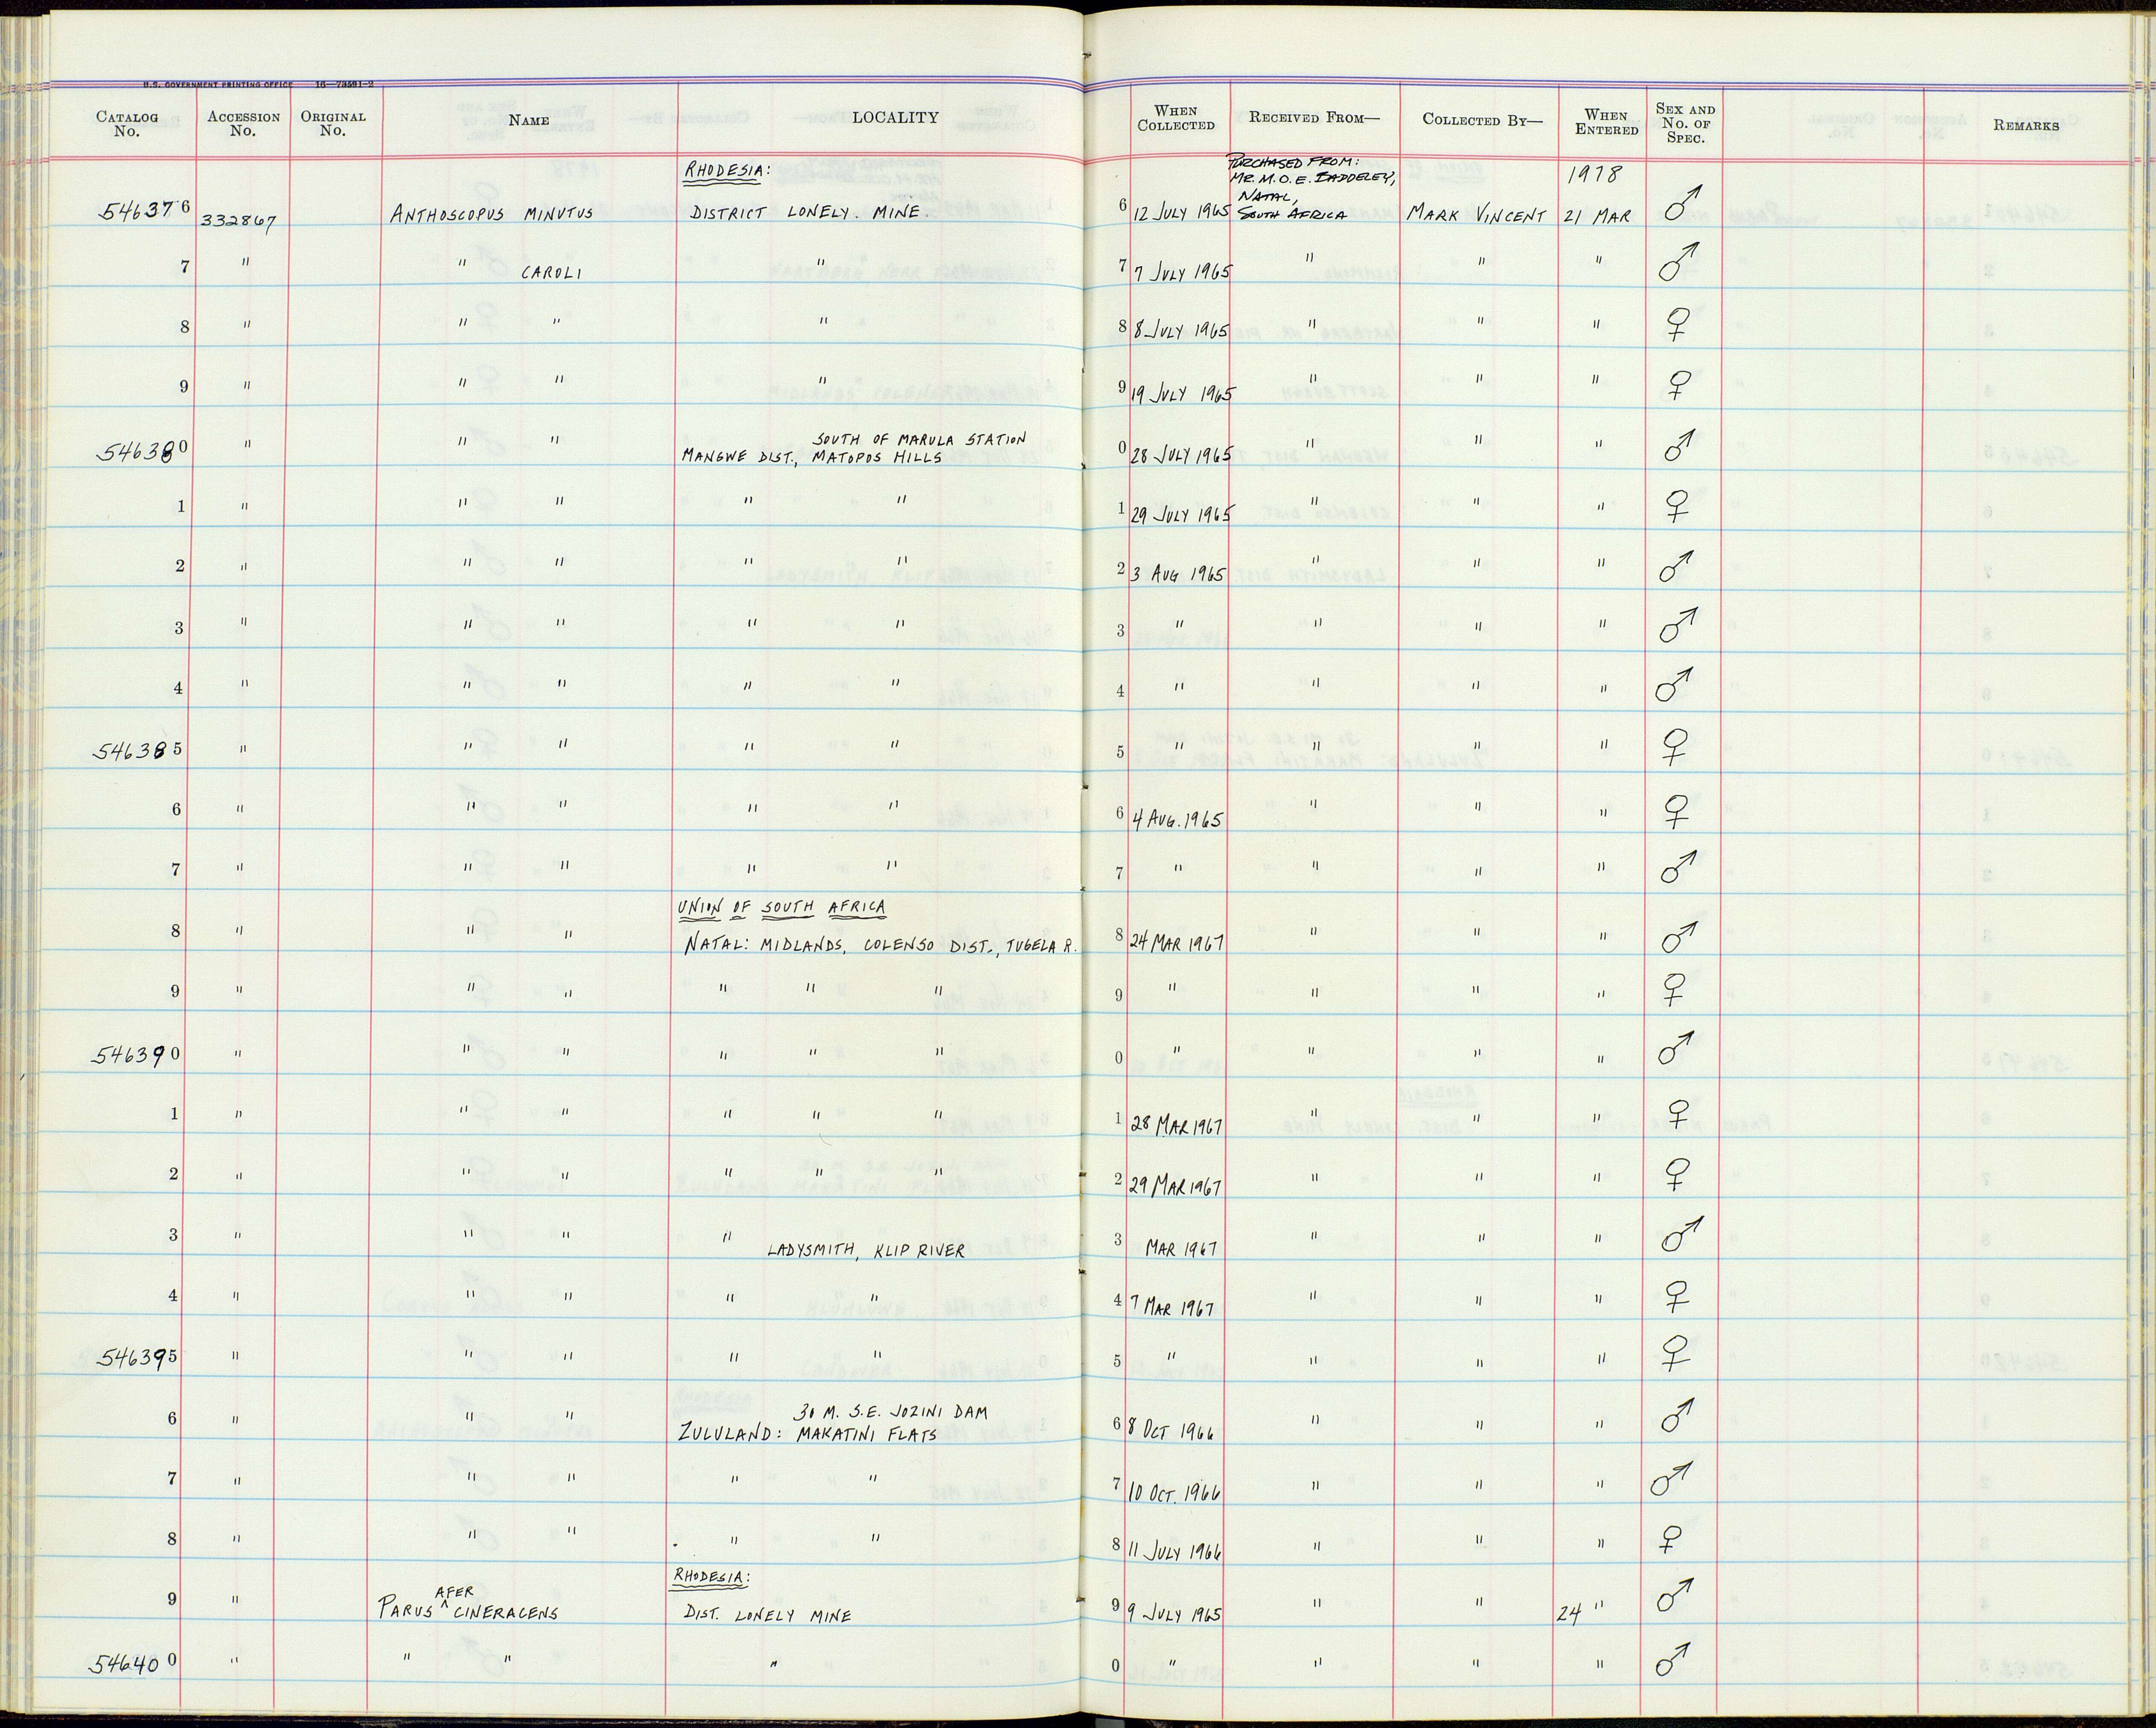 U.S. GOVERNMENT PRINTING OFFICE 16—73591-2
CATALOG No. ACCESSION No. ORIGINAL No. NAME LOCALITY WHEN COLLECTED RECEIVED FROM— COLLECTED BY— WHEN ENTERED SEX AND No. OF SPEC. REMARKS
RHODESIA: PURCHASED FROM: MR. M.O.E. BADDELEY, NATAL, SOUTH AFRICA 1978
546376 332867 ANTHOSCOPUS MINUTUS DISTRICT LONELY. MINE. 6 12 JULY 1965 MARK VINCENT 21 MAR ♂
7 " " CAROLI " 7 7 JULY 1965 " " " ♂
8 " " " " 8 8 JULY 1965 " " " ♀
9 " " " " 9 19 JULY 1965 " " " ♀
SOUTH OF MARULA STATION
546380 " " " MANGWE DIST., MATOPOS HILLS 0 28 JULY 1965 " " " ♂
1 " " " " " 1 29 JULY 1965 " " " ♀
2 " " " " " 2 3 AUG 1965 " " " ♂
3 " " " " " 3 " " " " ♂
4 " " " " " 4 " " " " ♂
546385 " " " " " 5 " " " " ♀
6 " " " " " 6 4 AUG. 1965 " " " ♀
7 " " " " " 7 " " " " ♂
UNION OF SOUTH AFRICA
8 " " " NATAL: MIDLANDS, COLENSO DIST., TUGELA R. 8 24 MAR 1967 " " " ♂
9 " " " " " " 9 " " " " ♀
546390 " " " " " " 0 " " " " ♂
1 " " " " " " 1 28 MAR 1967 " " " ♀
2 " " " " " " 2 29 MAR 1967 " " " ♀
3 " " " " LADYSMITH, KLIP RIVER 3 MAR 1967 " " " ♂
4 " " " " " " 4 7 MAR 1967 " " " ♀
546395 " " " " " 5 " " " " ♀
30 M. S.E. JOZINI DAM
6 " " " ZULULAND: MAKATINI FLATS 6 8 OCT 1966 " " " ♂
7 " " " " " 7 10 OCT. 1966 " " " ♂
8 " " " " " 8 11 JULY 1966 " " " ♀
RHODESIA:
9 " PARUS ^AFER CINERACENS DIST. LONELY MINE 9 9 JULY 1965 " " 24 " ♂
546400 " " " " 0 " " " " ♂